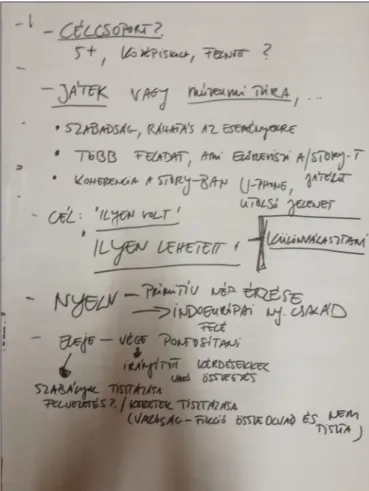 - CÉLCSOPORT?
5+, KÖZÉPISKOLA, FELNŐTT?
- JÁTÉK VAGY MÚZEUMI TÚRA, ...
• SZABADSÁG, RÁHATÁS AZ ESEMÉNYEKRE
• TÖBB FELADAT, AMI ELŐREVISZI A/STORY-T
JÁTÉKOT
• KOHERENCIA A STORY-BAN (I-PHONE,
UTOLSÓ JELENET
- CÉL: 'ILYEN VOLT'
'ILYEN LEHETETT' KÜLÖNVÁLASZTANI
- NYELV - PRIMITÍV NÉP ÉRZÉSE
→ INDOEURÓPAI NY. CSALÁD
FELÉ
- ELEJE - VÉGE PONTOSÍTANI
IRÁNYÍTOTT KÉRDÉSEKKEL
VALÓ ÖSSZEGZÉS
SZABÁNYOK TISZTÁZÁSA
FELVEZETÉS? / KERETEK TISZTÁZÁSA
(VALÓSÁG - FIKCIÓ ÖSSZEOLVAD ÉS NEM
TISZTA)